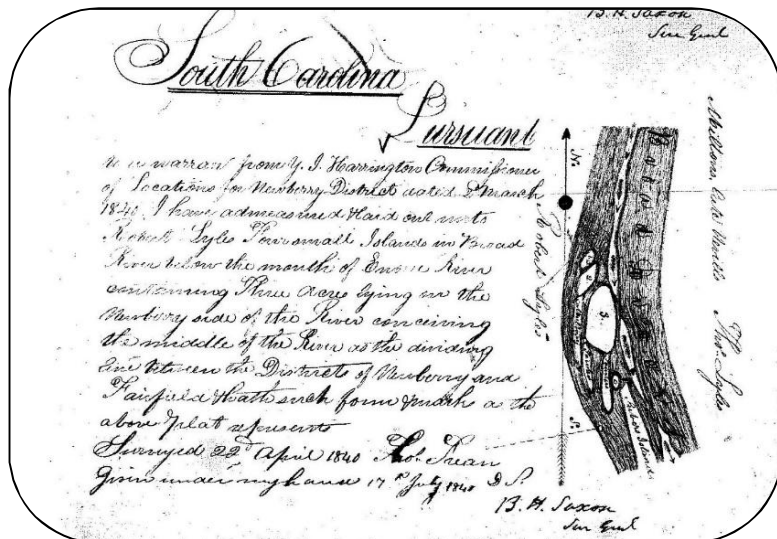 B. H. Saxon
Sur Genl
South Carolina
Pursuant
to a warran from Y. J. Harrington Commissioner
of Locations for Newberry District dated 2 March
1840. I have admeasured & laid out unto
Robert Lyles Four small Islands in Broad
River below the mouth of Enoree River
containing Three Acres lying on the
Newberry side of the River conceiving
the middle of the River as the dividing
line between the Districts of Newberry and
Fairfield & hath such form & mark as the
above plat represents
Surveyed 22d April 1840 Tho. D. S.
Given under my hand 17th July 1840
B. H. Saxon
Sur Genl
N.
Robert Lyles
3.
S.
Broad River
Islands
Thos Lyles